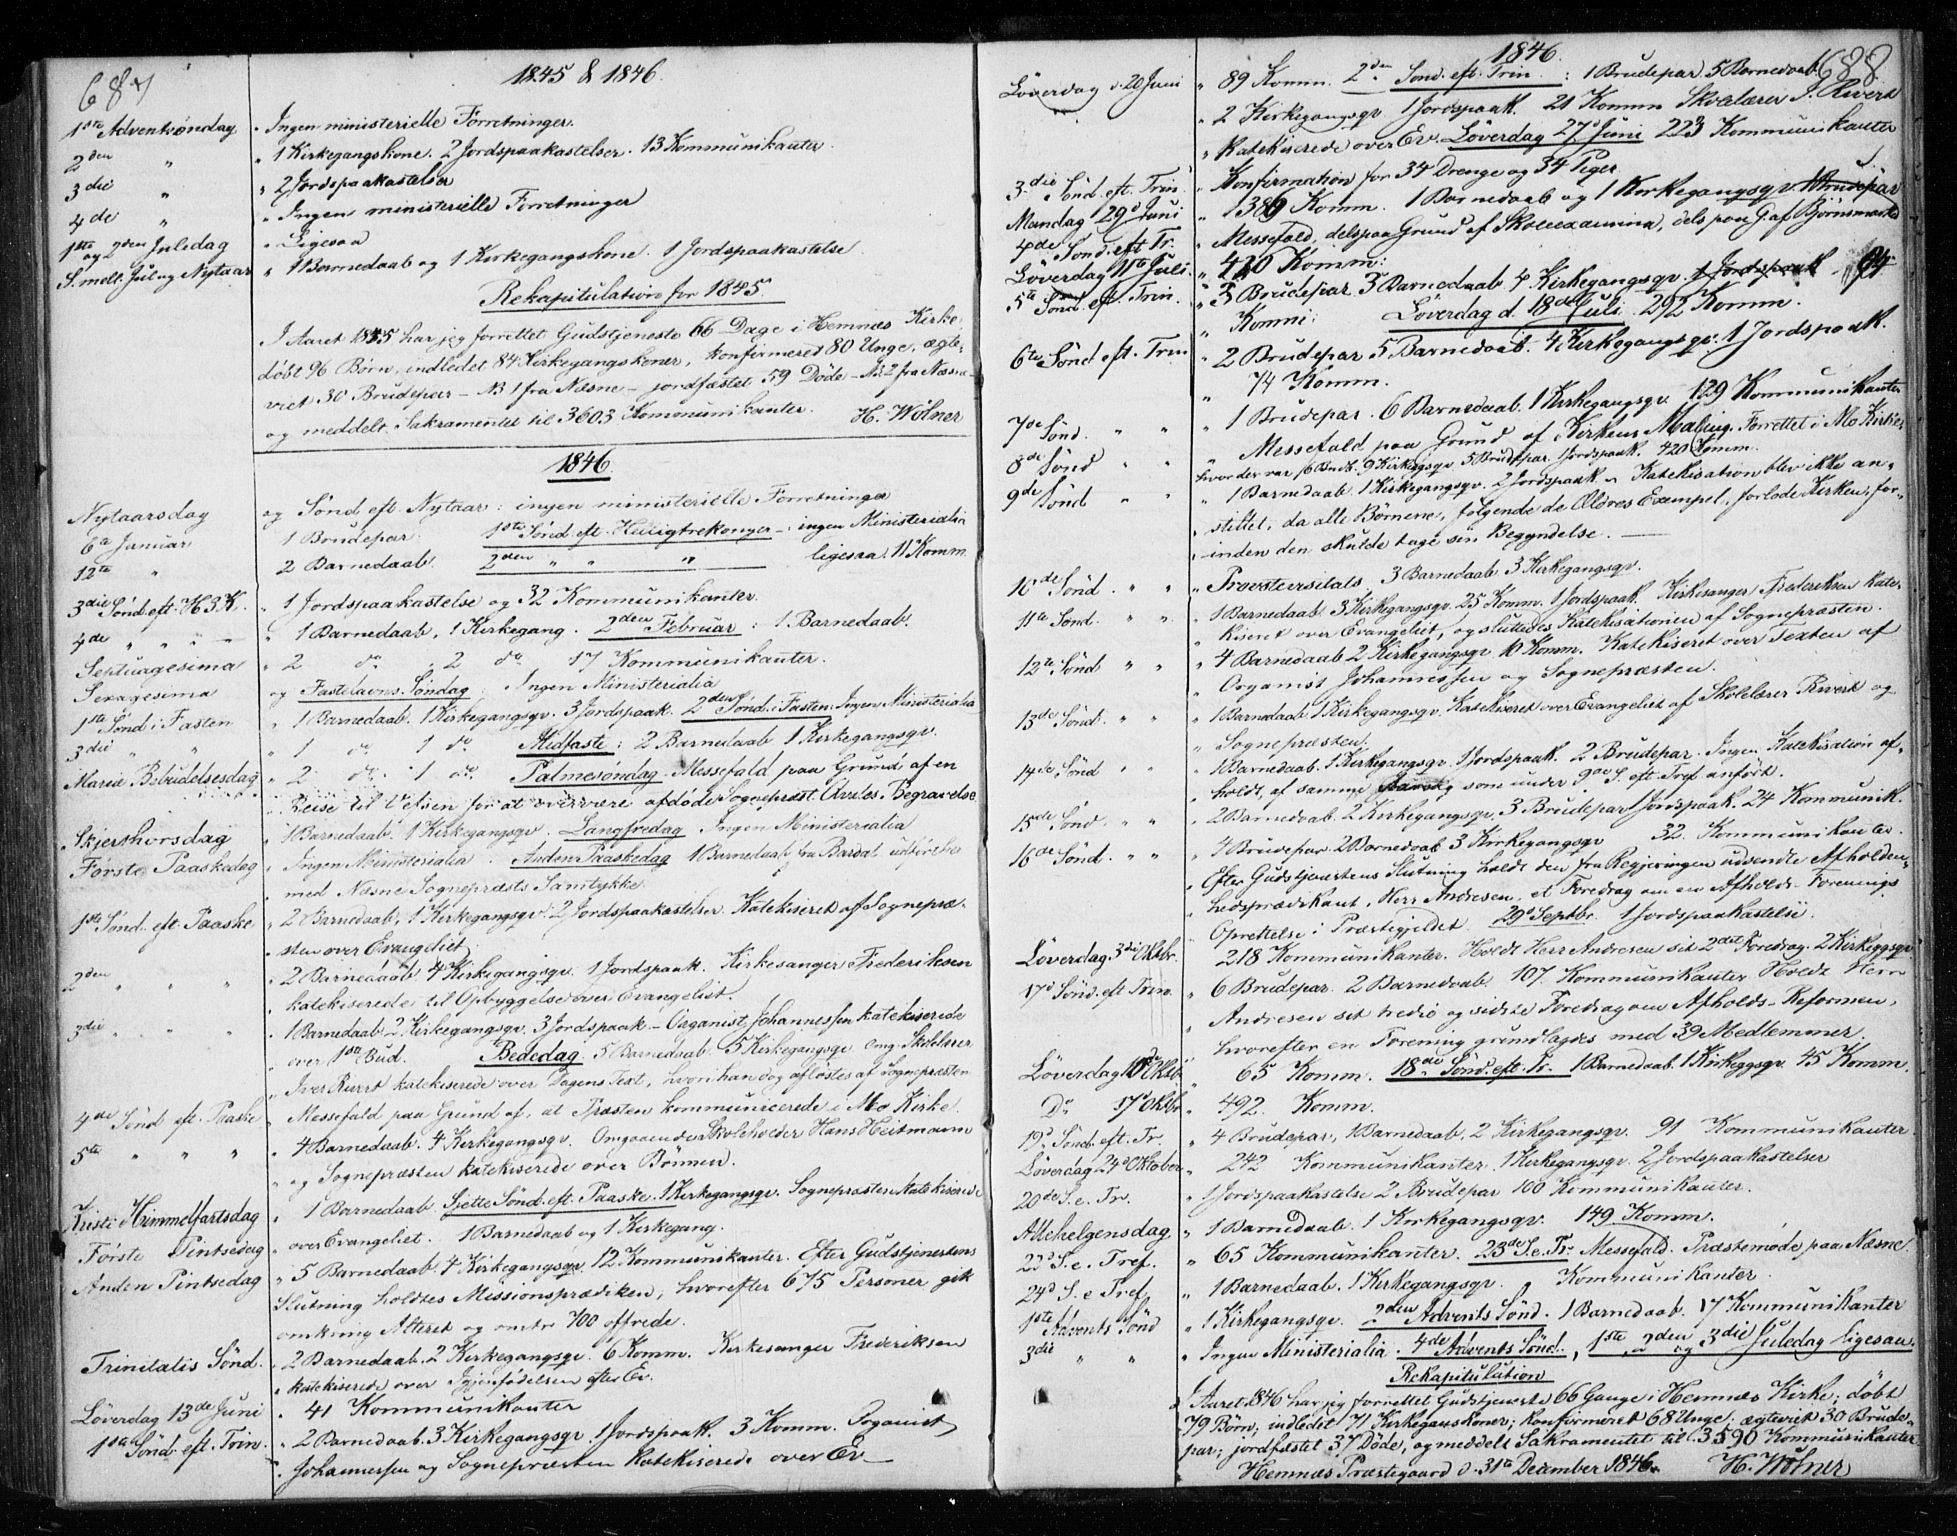 687
1845 & 1846.
1ste Adventsøndag " Ingen ministerielle Forretninger.
2den " " 1 Kirkegangskone. 2 Jordspaakastelser. 13 Kommunikanter.
3die " " 2 Jordspaakastelser
4de " " Ingen ministerielle Forretninger
1ste og 2den Juledag " Ligesaa
S. mell. Jul og Nytaar " 1 Barnedaab og 1 Kirkegangskone. 1 Jordspaakastelse
Rekapitulation for 1845.
I Aaret 1845 har jeg forrettet Gudstjeneste 66 Dage i Hemnæs Kirke,
døbt 96 Børn, indledet 84 Kirkegangskoner, konfirmeret 80 Unge, ægte-
viet 30 Brudepar – NB 1 fra Næsne – jordfæstet 59 Døde – NB 2 fra Næsne –
og meddelt Sakramentet til 3603 Kommunikanter. H. Wølner
1846.
Nytaarsdag og Sønd. eft. Nytaar: ingen ministerielle Forretninger
6te Januar 1 Brudepar. 1ste Sønd. eft. Helligtrekonger – : ingen Ministerialia
12te " 2 Barnedaab. 2den " " " ligesaa. 11 Komm.
3die Sønd. eft. H. 3 K. " 1 Jordspaakastelse og 32 Kommunikanter.
4de " " " – " 1 Barnedaab, 1 Kirkegang. 2den Februar: 1 Barnedaab.
Septuagesima " 2 do , 2 do 17 Kommunikanter.
Sexagesima og Fastelavns-Søndag: Ingen Ministerialia
1ste Sønd. i Fasten " 1 Barnedaab. 1 Kirkegangsqv. 3 Jordspaak. 2den Sønd. i Fasten. Ingen Ministerialia
3die " " " 1 do 1 do Midfaste: 2 Barnedaab 1 Kirkegangsqv.
Mariæ Bebudelsesdag " 2 do 1 do. Palmesøndag. Messefald paa Grund af en
Reise til Vefsen for at overvære afdøde Sognepræst Begravelse
Skjerthorsdag 1 Barnedaab. 1 Kirkegangsqv. Langfredag Ingen Ministerialia
Første Paaskedag Ingen Ministerialia. Anden Paaskedag 1 Barnedaab fra Bardal udført
med Næsne Sognepræsts Samtykke.
1ste Sønd. eft. Paaske " 2 Barnedaab, 1 Kirkegangsqv. 2 Jordspaakastelser. Katekiseret af Sognepræ-
sten over Evangeliet.
2den " " " " 2 Barnedaab 4 Kirkegangsqv. 1 Jordspaak. Kirkesanger Frederiksen
katekiserede til Opbyggelse over Evangeliet.
3die " " " " 1 Barnedaab 2 Kirkegangsqv. 3 Jordspaak – Organist Johannessen katekiserede
over 1ste Bud. Bededag 5 Barnedaab. 5 Kirkegangsqv. Omg. Skolelærer
Iver Rivert katekiserede over Dagens Text, hvori han dog afløstes af Sognepræsten
4de Sønd eft. Paaske " Messefald paa Grund af, at Præsten kommunicerede i Mo Kirke.
5te " " " " 4 Barnedaab. 4 Kirkegangsqv. Omgaaende Skoleholder Hans Heitmann
" og Sognepræsten katekiserede over Bønnen.
Kristi Himmelfartsdag " 1 Barnedaab. Sjette Sønd. eft. Paaske. 1 Kirkegangsqv. Sognepræsten katekiserede
Første Pintsedag " over Evangeliet. 1 Barnedaab og 1 Kirkegang.
Anden Pintsedag " 5 Barnedaab. 4 Kirkegangsqv. 12 Kommunikanter. Efter Gudstjenestens
Slutning holdtes Missionsprædiken, hvorefter 675 Personer gik
omkring Alteret og omtr. 700 offrede.
Trinitatis Sønd. " 2 Barnedaab. 2 Kirkegangsqv. 6 Komm. Kirkesanger Frederiksen
katekiserede over Igjenfødelsen efter Ev.
Løverdag 13de Juni " 41 Kommunikanter
1ste Sønd. eft. Trin. " 2 Barnedaab. 3 Kirkegangsqv. 1 Jordspaak. 3 Komm. Organist
Johannessen og Sognepræsten katekiserede over Ev. –
1846. 688
Løverdag d. 20 Juni " 89 Komm. 2den Sønd. eft. Trin.: 1 Brudepar 5 Barnedaab.
" 2 Kirkegangsqv 1 Jordspaak. 21 Komm Skolelærer I. Rivert
" katekiserede over Ev. Løverdag 27de Juni 223 Kommunikanter
3die Sønd. eft. Trin. " Konfirmation for 34 Drenge og 34 Piger.
Mandag 29d Juni " Komm. 1 Barnedaab og 1 Kirkegangsqv. 1 Brudepar
4de Sønd. eft. Tr. " Messefald, dels paa Grund af Skoleexamina, dels paa G. af Bjørnsmarked
Løverdag 11te Juli. " Komm:
5te Sønd. eft. Trin. " 3 Brudepar 3 Barnedaab 4 Kirkegangsqv. 1 Jordspaak
" Komni: Løverdag d. 18de Juli. 292 Komm.
6te Sønd eft. Trin " 2 Brudepar 5 Barnedaab. 4 Kirkegangsqv. 1 Jordspaak.
" 74 Komm.
7de Sønd. " " " 1 Brudepar. 6 Barnedaab. 1 Kirkegangsqv. 129 Kommunikanter
8de Sønd " " " Messefald paa Grund af Kirkens Maling. Forrettet i Mo Kirke
hvor der var 16 Brnd. 9 Kirkeggsqv. 5 Brudepar. 1 Jordspaak. 420 Komm.
9de Sønd " " " 1 Barnedaab. 1 Kirkegangsqv. 2 Jordspaak. Katekisation blev ikke an-
stillet, da alle Børnene, følgende de Ældres Exempel, forlode Kirken, for-
inden den skulde tage sin Begyndelse. –
10de Sønd. " " " Provstevisitats. 3 Barnedaab. 3 Kirkegangsqv.
11te Sønd. " " " 1 Barnedaab 3 Kirkegangsqv. 25 Komm. 1 Jordspaak. Kirkesanger Frederiksen kate-
kiseret over Evangeliet, og sluttedes Katekisationen af Sognepræsten.
12te Sønd " " " 4 Barnedaab 2 Kirkegangsqv. 10 Komm. Katekiseret over Texten af
Organist Johannessen og Sognepræsten.
13de Sønd. " " " 1 Barnedaab 1 Kirkegangsqv. Katekiseret over Evangeliet af Skolelærer Rivert og
" Sognepræsten.
14de Sønd " " " 1 Barnedaab. 1 Kirkegangsqv. 1 Jordspaak. 2 Brudepar. Ingen Katekisation af-
holdt, af samme som under 9de S. eft. Tref. anført.
15de Sønd. " " " 2 Barnedaab. 2 Kirkegangsqv. 3 Brudepar 1 Jordspaak. 24 Kommunik.
16de Sønd. " " " 4 Brudepar 2 Barnedaab 3 Kirkegangsqv 32 Kommunikanter.
" Efter Gudstjenestens Slutning holdt den fra Regjeringen udsendte Afholden-
" hedsprædikant, Herr Andresen, et Foredrag om en Afholds-Forenings
" Oprettelse i Præstegjeldet. 29de Septbr. 1 Jordspaakastelse.
Løverdag 3die Oktbr. " 218 Kommunikanter. Holdt Herr Andresen sit 2det Foredrag. 2 Kirkeggsqv
17de Sønd. eft Trin. " 6 Brudepar. 2 Barnedaab. 107. Kommunikanter Holdt Herr
" Andresen sit tredie og sidste Foredrag om Afholds-Reformen,
" hvorefter en Forening grundlagdes med 39 Medlemmer.
Løverdag 10d Oktbr " 65 Komm. 18de Sønd. eft. Tr. 1 Barnedaab. 1 Kirkeggsqv. 45 Komm.
Do 17d Oktbr " 492. Komm.
19d Sønd. eft. Tr. " 4 Brudepar, 1 Barnedaab, 2 Kirkegangsqv. 91 Kommunikanter
Løverdag 24d Oktober " 242 Kommunikanter 1 Kirkegangsqv. 2 Jordspaakastelser
20de S. e. Tr. " 1 Jordspaakastelse 2 Brudepar 100 Kommunikanter.
Allehelgensdag " 1 Barnedaab. 1 Kirkegangsqv. 149 Komm.
22d S. e. Tref. " 65 Kommunikanter. 23de S. e. Tr. Messefald. Præstemøde paa Næsne.
24d S. e Tref. " 1 Barnedaab. 1 Kirkegangsqv. Kommunikanter.
1ste Advents Sønd " 1 Kirkegangsqv. 2den Advents Sønd. 1 Barnedaab. 17 Kommunikanter
3die " " " Ingen Ministerialia. 4de Advents Sønd., 1ste, 2den og 3die Juledag ligesaa.
Rekapitulation
I Aaret 1846 har jeg forrettet Gudstjeneste 66 Gange i Hemnæs Kirke; døbt
79 Børn; indledet 71 Kirkegangskoner; konfirmeret 68 Unge; ægteviet 30 Brude-
par; jordfæstet 37 Døde, og meddelt Sakramentet til 3590 Kommunikanter
Hemnæs Præstegaard d. 31te December 1846. H. Wølner